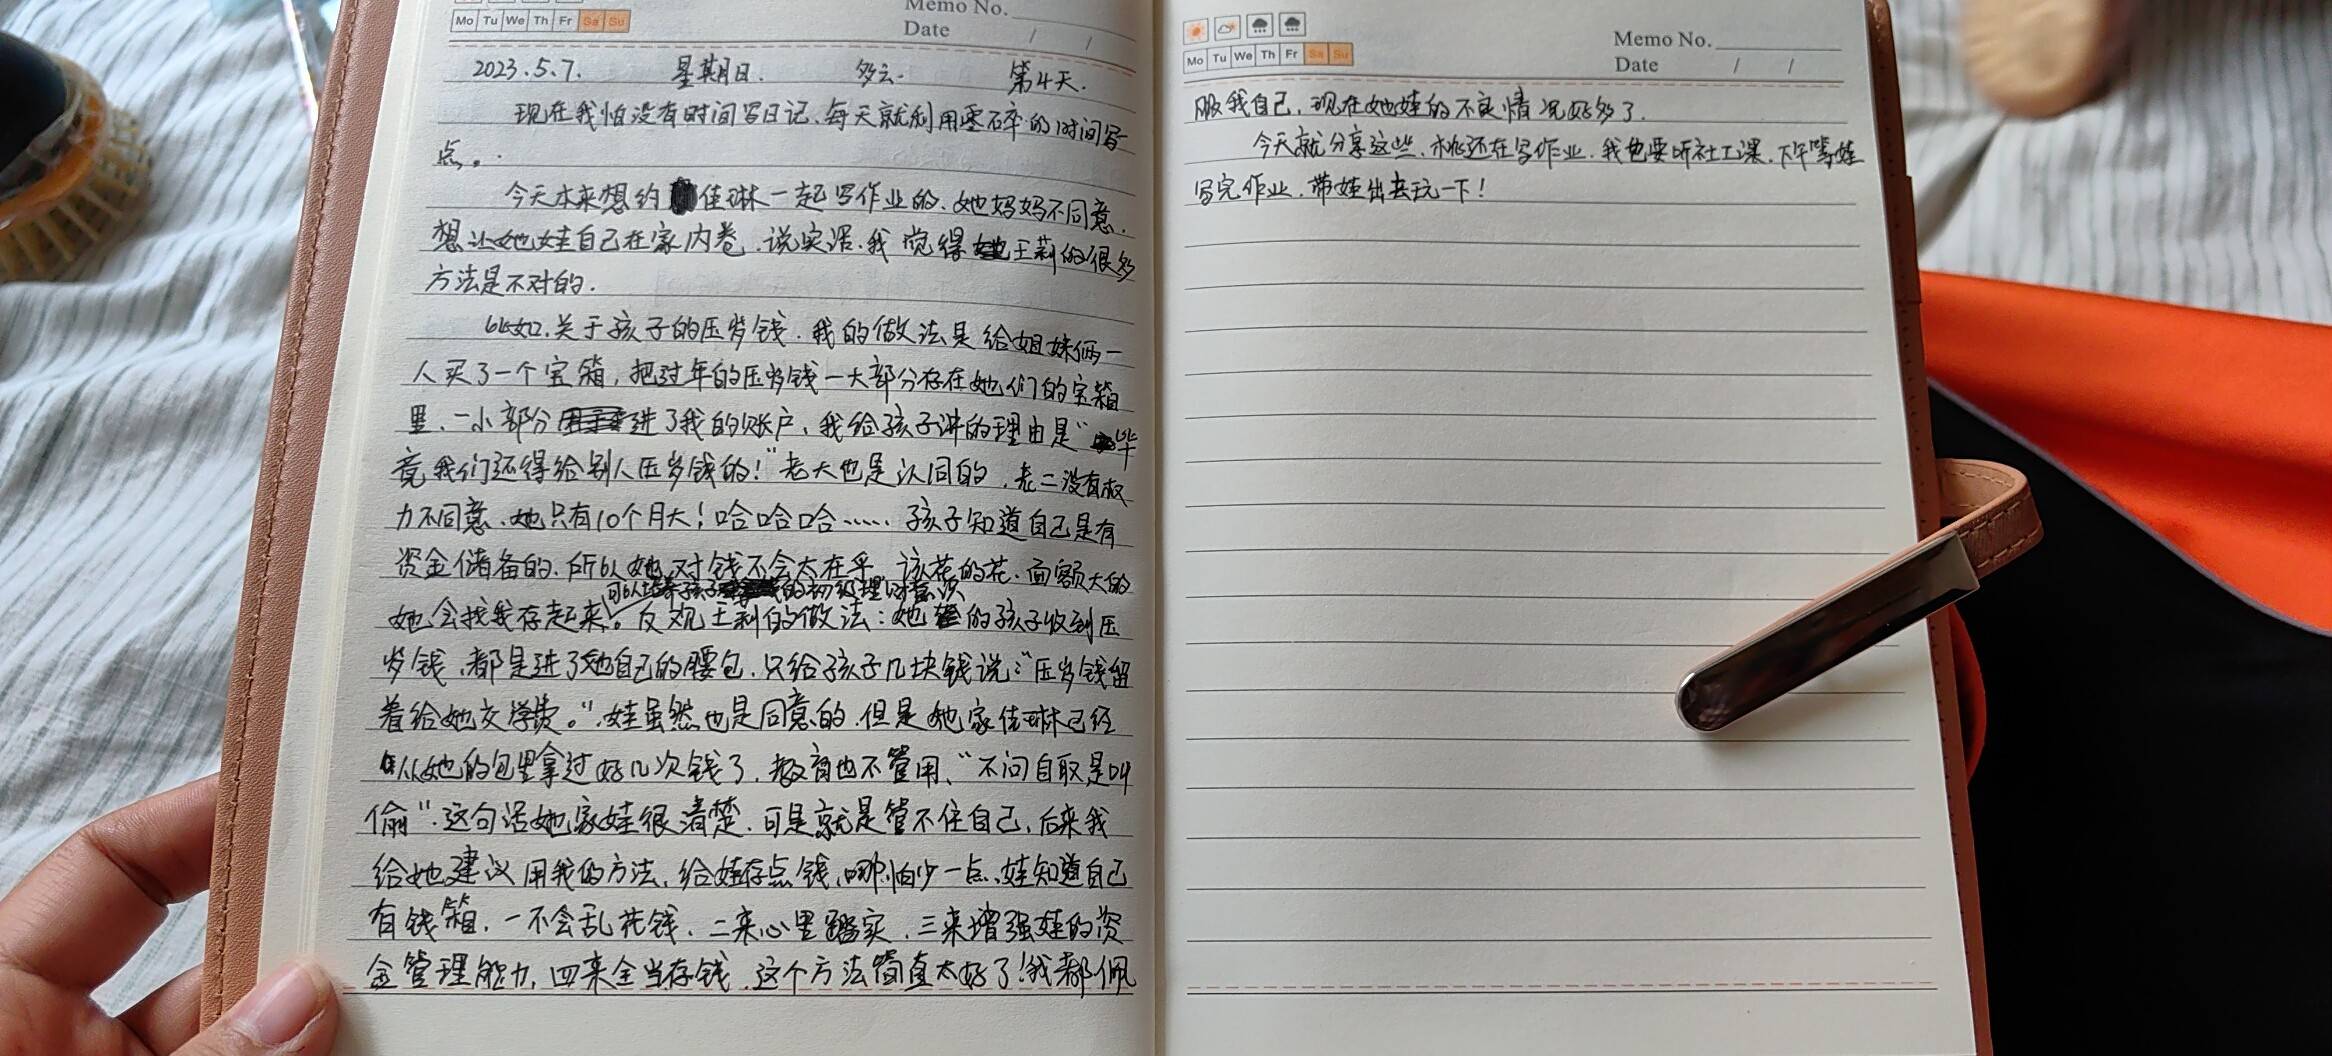 Mo Tu We Th Fr Sa Su
Memo No.
Date / /
2023.5.7. 星期日. 多云. 第4天.
现在我怕没有时间写日记、每天就利用零碎的时间写
点。
今天本来想约佳琳一起写作业的、她妈妈不同意、
想让她娃自己在家内卷、说实话、我觉得王莉的很多
方法是不对的.
比如、关于孩子的压岁钱、我的做法是给姐妹俩一
人买了一个宝箱，把过年的压岁钱一大部分存在她们的宝箱
里、一小部分进了我的账户、我给孩子讲的理由是“毕
竟我们还得给别人压岁钱的！”老大也是认同的、老二没有权
力不同意、她只有10个月大！哈哈哈…… 孩子知道自己是有
资金储备的、所以她对钱不会太在乎、该花的花、面额大的
可以培养孩子的初级理财意识
她会找我存起来。反观王莉的做法：她的孩子收到压
岁钱、都是进了她自己的腰包、只给孩子几块钱说：“压岁钱留
着给她交学费。”、娃虽然也是同意的、但是她家佳琳已经
从她的包里拿过好几次钱了、教育也不管用、“不问自取是叫
偷”、这句话她家娃很清楚、可是就是管不住自己、后来我
给她建议用我的方法、给娃存点钱、哪怕少一点、娃知道自己
有钱箱、一不会乱花钱、二来心里踏实、三来增强娃的资
金管理能力、四来全当存钱、这个方法简直太好了！我都佩
Mo Tu We Th Fr Sa Su
Memo No.
Date / /
服我自己、现在她娃的不良情况好多了.
今天就分享这些、还在写作业、我也要听社工课、下午等娃
写完作业、带娃出去玩一下！